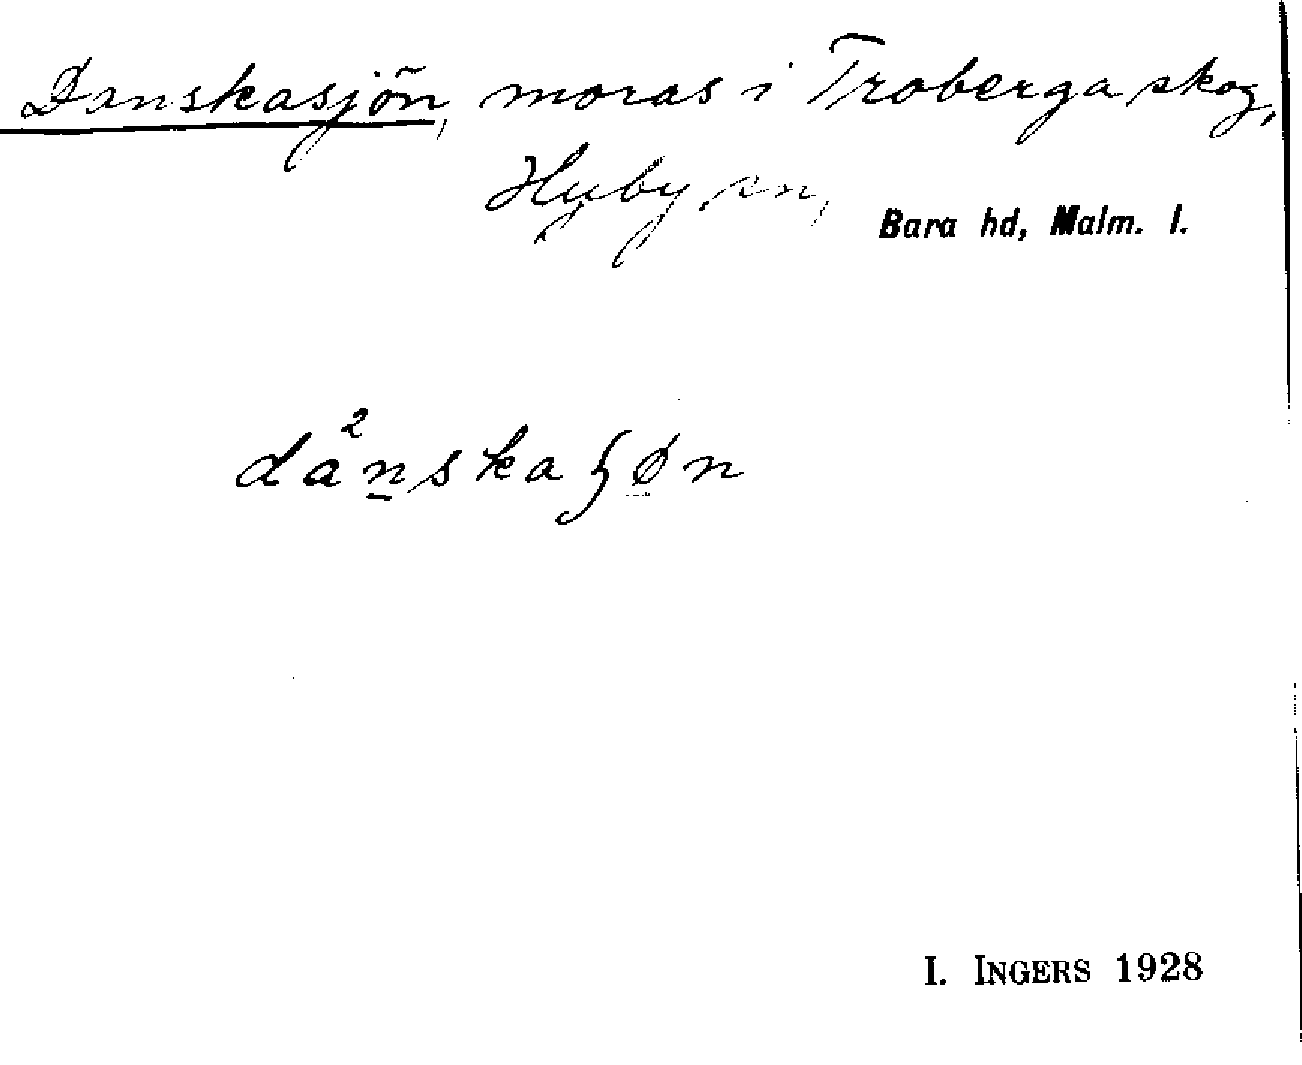 Danskasjön, moras i Troberga skog,
Hyby sn, Bara hd, Malm. l.
da²nskaʃøn
I. INGERS 1928